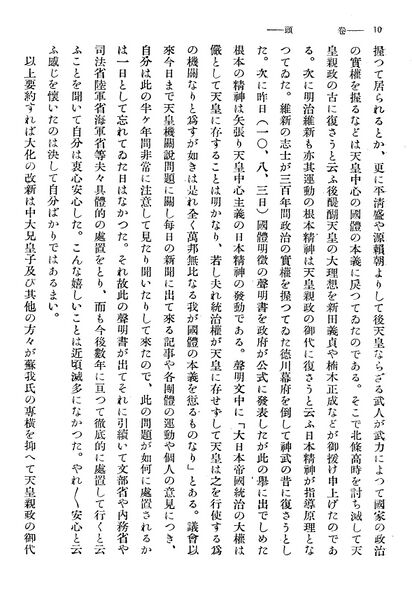 10　――卷　　　頭――
操つて居られるとか、更に平淸盛や源賴朝よりして後天皇ならざる武人が武力によつて國家の政治
の實權を握るなどは天皇中心の國體の本義に戾つてゐたのである。そこで北條高時を討ち滅して天
皇親政の古に復さうと云ふ後醍醐天皇の大理想を新田義貞や楠木正成などが御援け申上げたのであ
る。次に明治維新も亦其運動の根本精神は天皇親政の御代に復さうと云ふ日本精神が指導原理とな
つてゐた。維新の志士が三百年間政治の實權を操つてゐた德川幕府を倒して神武の昔に復さうとし
た。次に昨日（一〇、八、三日）國體明徵の聲明書を政府が公式に發表したが此の擧に出でしめた
根本の精神は矢張り天皇中心主義の日本精神の發動である。聲明文中に「大日本帝國統治の大權は
儼として天皇に存することは明かなり、若し夫れ統治權が天皇に存せずして天皇は之を行使する爲
の機關なりと爲すが如きは是れ全く萬邦無比なる我が國體の本義を愆るものなり」とある。議會以
來今日まで天皇機關說問題に關し每日の新聞に出て來る記事や各團體の運動や個人の意見につき、
自分は此の半ケ年間非常に注意して見たり聞いたりして來たので、此の問題が如何に處置されるか
は一日として忘れてゐた日はなかつた。それ故此の聲明書が出てそれに引續いて文部省や內務省や
司法省陸軍省海軍省等夫々具體的の處置をとり、而も今後數年に亘つて徹底的に處置して行くと云
ふことを聞いて自分は衷心安心した。こんな嬉しいことは近頃滅多になかつた。やれ〳〵安心と云
ふ感じを懷いたのは決して自分ばかりではあるまい。
以上要約すれば大化の改新は中大兄皇子及び其他の方々が蘇我氏の專橫を抑へて天皇親政の御代